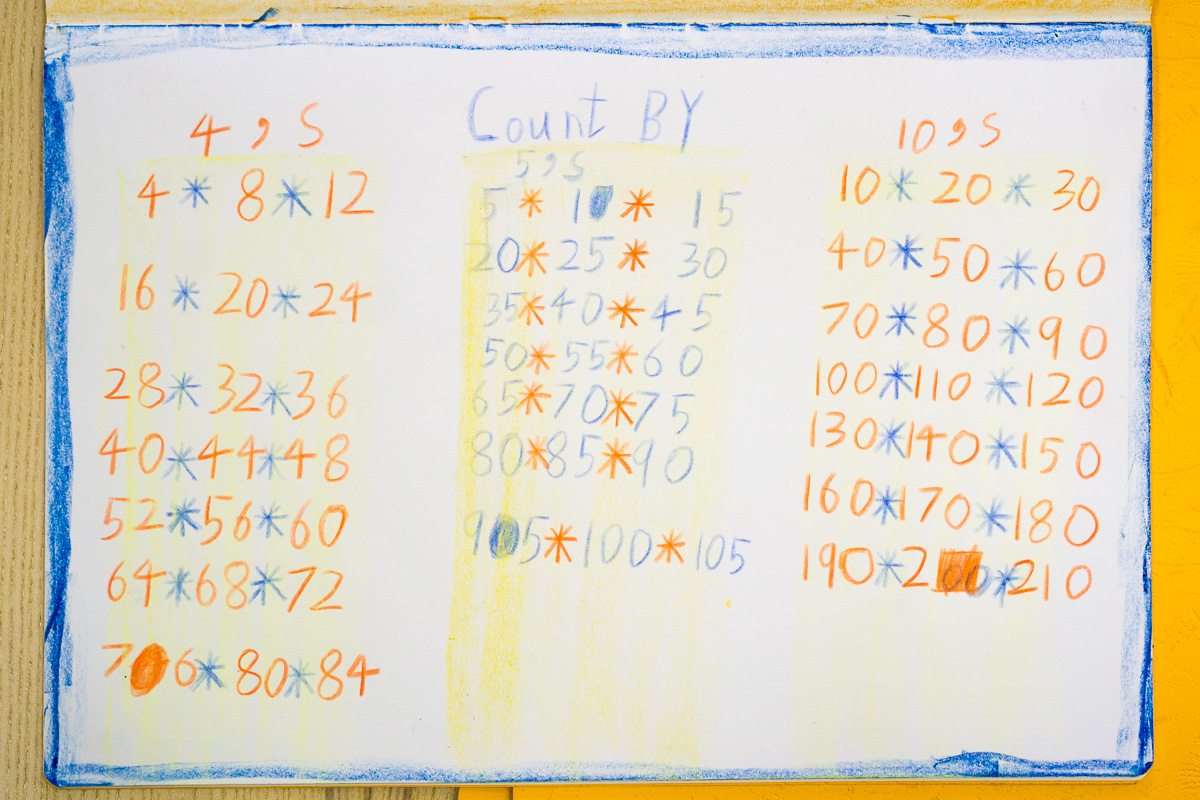 Count BY
4,s
4 * 8 * 12
16 * 20 * 24
28 * 32 * 36
40 * 44 * 48
52 * 56 * 60
64 * 68 * 72
76 * 80 * 84
5,s
5 * 10 * 15
20 * 25 * 30
35 * 40 * 45
50 * 55 * 60
65 * 70 * 75
80 * 85 * 90
95 * 100 * 105
10,s
10 * 20 * 30
40 * 50 * 60
70 * 80 * 90
100 * 110 * 120
130 * 140 * 150
160 * 170 * 180
190 * 200 * 210